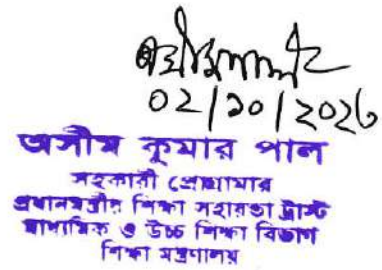 02/10/2026
অসীম কুমার পাল
সহকারী প্রোগ্রামার
প্রধানমন্ত্রীর শিক্ষা সহায়তা ট্রাস্ট
মাধ্যমিক ও উচ্চ শিক্ষা বিভাগ
শিক্ষা মন্ত্রণালয়